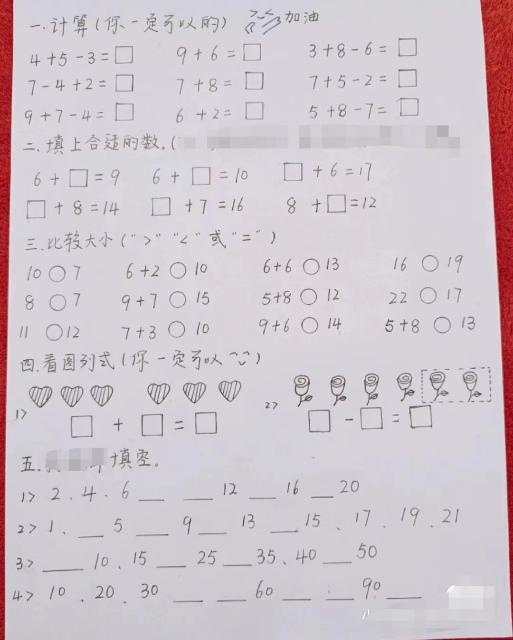 一.计算(你一定可以的) 加油
4+5-3=□ 9+6=□ 3+8-6=□
7-4+2=□ 7+8=□ 7+5-2=□
9+7-4=□ 6+2=□ 5+8-7=□
二.填上合适的数.(
6+□=9 6+□=10 □+6=17
□+8=14 □+7=16 8+□=12
三.比较大小(">""<"或"=")
10○7 6+2○10 6+6○13 16○19
8○7 9+7○15 5+8○12 22○17
11○12 7+3○10 9+6○14 5+8○13
四.看图列式(你一定可以^‿^)
1> □+□=□ 2> □-□=□
五. 填空。
1> 2.4.6 __ __ 12 __ 16 __ 20
2> 1. __ 5 __ 9 __ 13 __ 15、17.19.21
3> __ 10.15 __ 25 __ 35.40 __ 50
4> 10.20.30 __ __ 60 __ __ 90 __